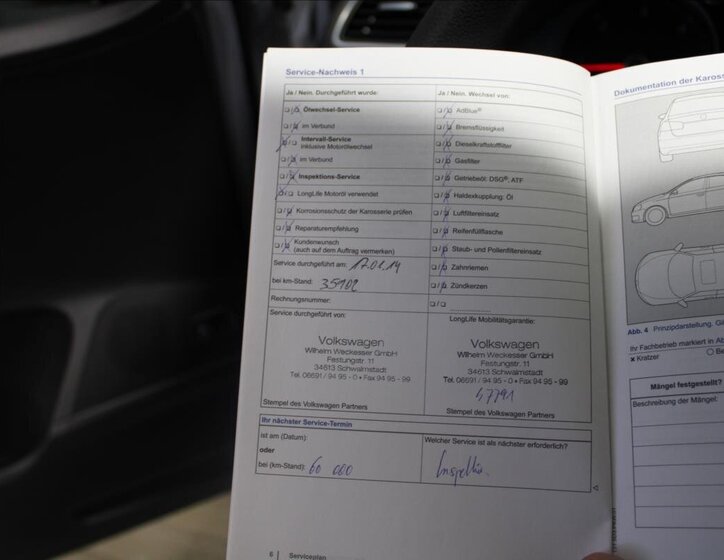 Service-Nachweis 1
Ja / Nein. Durchgeführt wurde:
Ölwechsel-Service
im Verbund
Intervall-Service
inklusive Motorölwechsel
im Verbund
Inspektions-Service
LongLife Motoröl verwendet
Korrosionsschutz der Karosserie prüfen
Reparaturempfehlung
Kundenwunsch
(auch auf dem Auftrag vermerken)
Service durchgeführt am: 17.01.14
bei km-Stand: 35902
Rechnungsnummer:
Service durchgeführt von:
Volkswagen
Wilhelm Weckesser GmbH
Festungstr. 11
34613 Schwalmstadt
Tel. 06691 / 94 95 - 0 • Fax 94 95 - 99
Stempel des Volkswagen Partners
Ja / Nein. Wechsel von:
AdBlue®
Bremsflüssigkeit
Dieselkraftstofffilter
Gasfilter
Getriebeöl: DSG®, ATF
Haldexkupplung: Öl
Luftfiltereinsatz
Reifenfüllflasche
Staub- und Pollenfiltereinsatz
Zahnriemen
Zündkerzen
LongLife Mobilitätsgarantie:
Volkswagen
Wilhelm Weckesser GmbH
Festungstr. 11
34613 Schwalmstadt
Tel. 06691 / 94 95 - 0 • Fax 94 95 - 99
Stempel des Volkswagen Partners
Ihr nächster Service-Termin
ist am (Datum):
oder
bei (km-Stand): 60 000
Welcher Service ist als nächster erforderlich?
6 Serviceplan
Dokumentation der Karosse
Abb. 4 Prinzipdarstellung.
Ihr Fachbetrieb markiert in
x Kratzer
Mängel festgestellt?
Beschreibung der Mängel: